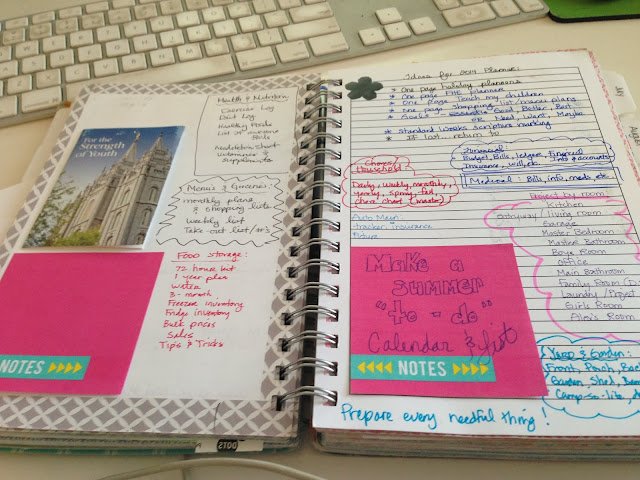 For the
Strength
of Youth
Health & Nutrition
Exercise Log
Diet Log
Healthy Foods
Menus & Groceries:
monthly plans
& shopping lists
weekly list
Take-out list/#'s
Food Storage:
72 hour kit
1 year plan
Water
3-month
Freezer inventory
Fridge inventory
Bulk prices
Sales
Tips & Tricks
NOTES
Ideas for 2014 Planner:
* One page holiday planners
* One page FHE planner
* One page Teach my children
* One page Shopping list/menu plans
* Goals → Good, Better, Best
or Need, Want, Maybe
* Standard Works Scripture marking
* If lost, return to
Financial:
Budget, Bills, Ledger, Financial
Insurance, will, etc. Info & accounts
Medical: Bills, info, meds, etc
Chores
Household
Daily, weekly, monthly,
yearly, spring, fall
chore chart (master)
Auto Main.
-tracker, insurance
by room
Kitchen
entryway / living room
Garage
Master Bedroom
Master Bathroom
Boys Room
office
Main Bathroom
Family Room
Laundry /
Girls Room
Alex's Room
Make a
Summer
"to-do"
Calendar & list
NOTES
Yard & Garden:
Front, Porch, Back
Garden, Shed,
Prepare every needful thing!